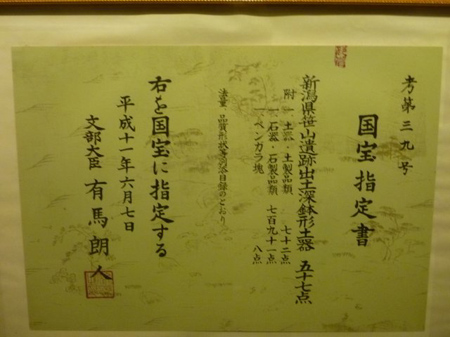 考第三九号
国宝指定書
新潟県笹山遺跡出土深鉢形土器 五十七点
附 一 土器・土製品類 七十二点
一 石器・石製品類 七百九十一点
一 ベンガラ塊 八点
法量 品質形状等別冊目録のとおり
右を国宝に指定する
平成十一年六月七日
文部大臣 有馬朗人